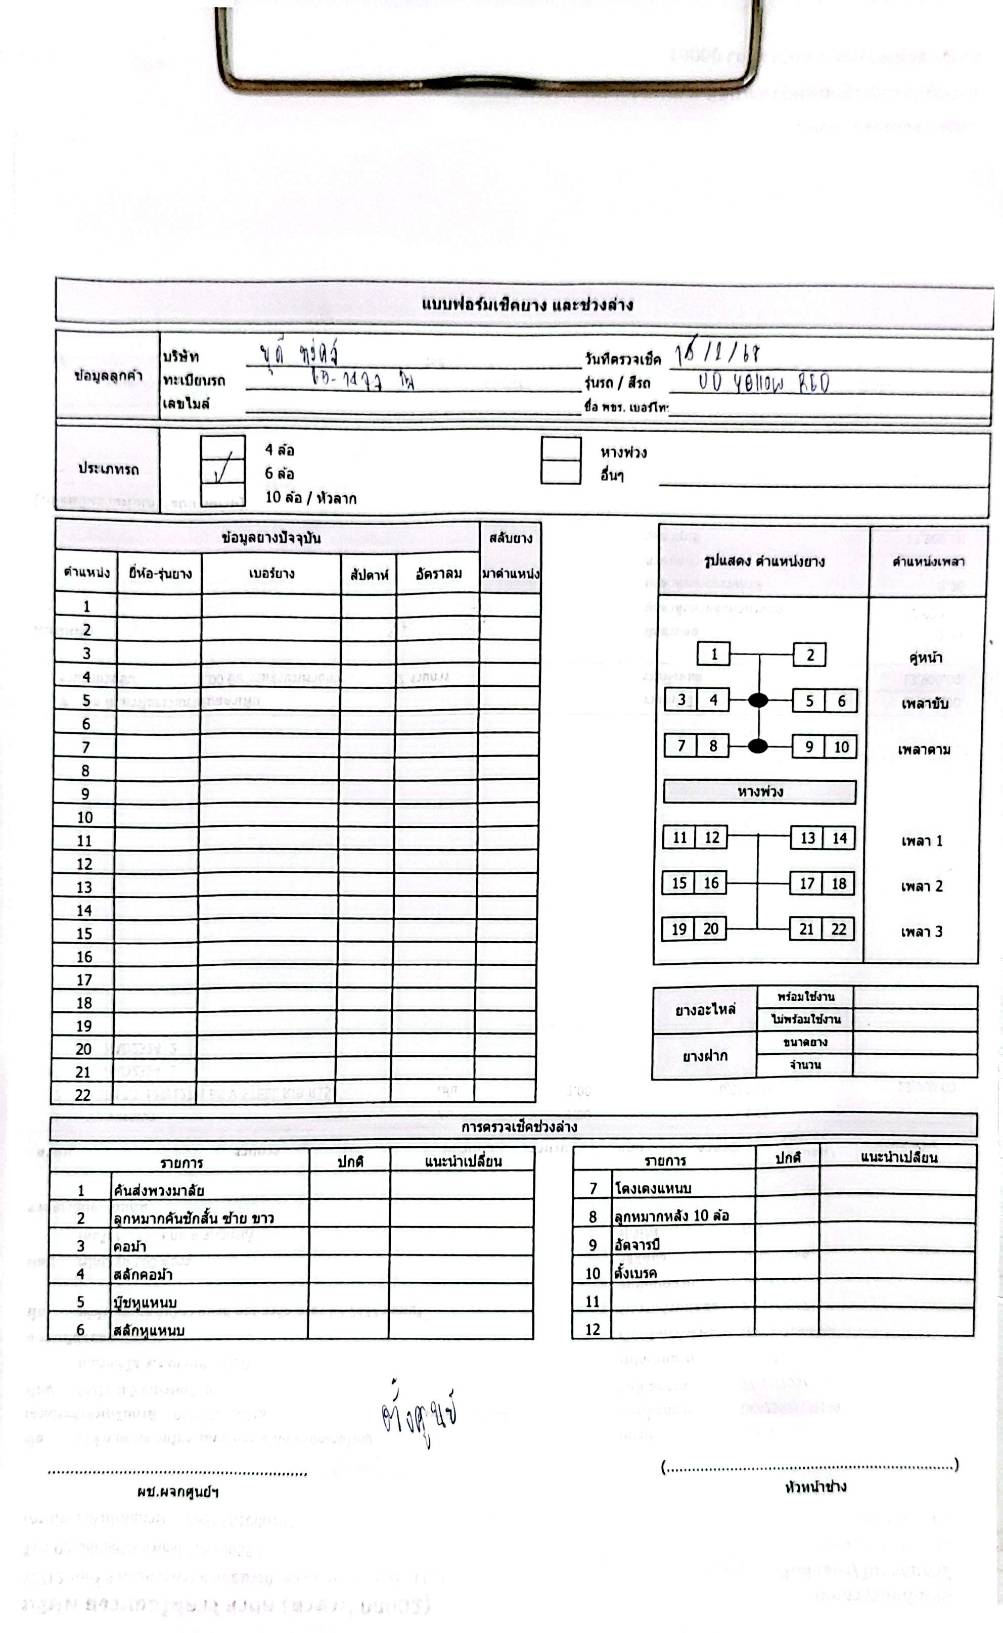 แบบฟอร์มเช็คยาง และช่วงล่าง
ข้อมูลลูกค้า
บริษัท
วันที่ตรวจเช็ค
ทะเบียนรถ
รุ่นรถ / สีรถ UD Yellow RED
เลขไมล์
ชื่อ พขร. เบอร์โทร:
ประเภทรถ
4 ล้อ
หางพ่วง
✓ 6 ล้อ
อื่นๆ
10 ล้อ / หัวลาก
ข้อมูลยางปัจจุบัน สลับยาง
ตำแหน่ง ยี่ห้อ-รุ่นยาง เบอร์ยาง สัปดาห์ อัตราลม มาตำแหน่ง
1
2
3
4
5
6
7
8
9
10
11
12
13
14
15
16
17
18
19
20
21
22
รูปแสดง ตำแหน่งยาง ตำแหน่งเพลา
1 2 คู่หน้า
3 4 5 6 เพลาขับ
7 8 9 10 เพลาตาม
หางพ่วง
11 12 13 14 เพลา 1
15 16 17 18 เพลา 2
19 20 21 22 เพลา 3
ยางอะไหล่ พร้อมใช้งาน
ไม่พร้อมใช้งาน
ยางฝาก ขนาดยาง
จำนวน
การตรวจเช็คช่วงล่าง
รายการ ปกติ แนะนำเปลี่ยน
1 คันส่งพวงมาลัย
2 ลูกหมากคันชักสั้น ซ้าย ขาว
3 คอม้า
4 สลักคอม้า
5 บู๊ชหูแหนบ
6 สลักหูแหนบ
รายการ ปกติ แนะนำเปลี่ยน
7 โตงเตงแหนบ
8 ลูกหมากหลัง 10 ล้อ
9 อัดจารบี
10 ตั้งเบรค
11
12
ตั้งศูนย์
ผช.ผจกศูนย์ฯ
(..........)
หัวหน้าช่าง